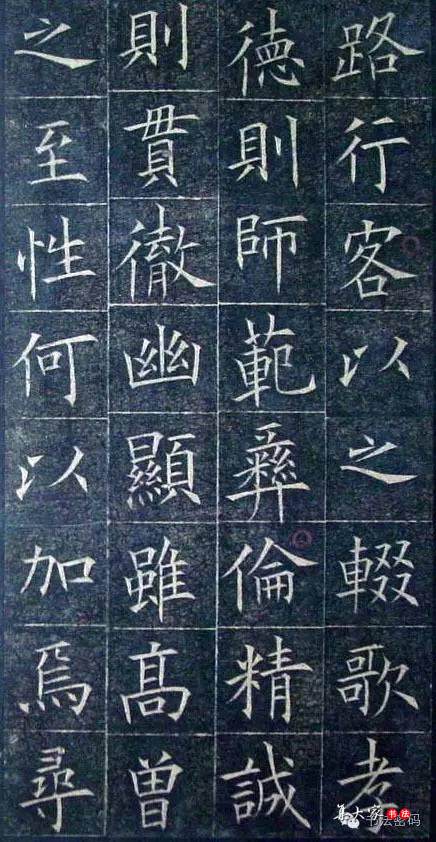 路行客以之輟歌考
德則師範彝倫精誠
則貫徹幽顯雖高曾
之至性何以加焉尋
集大家书法
书法密码